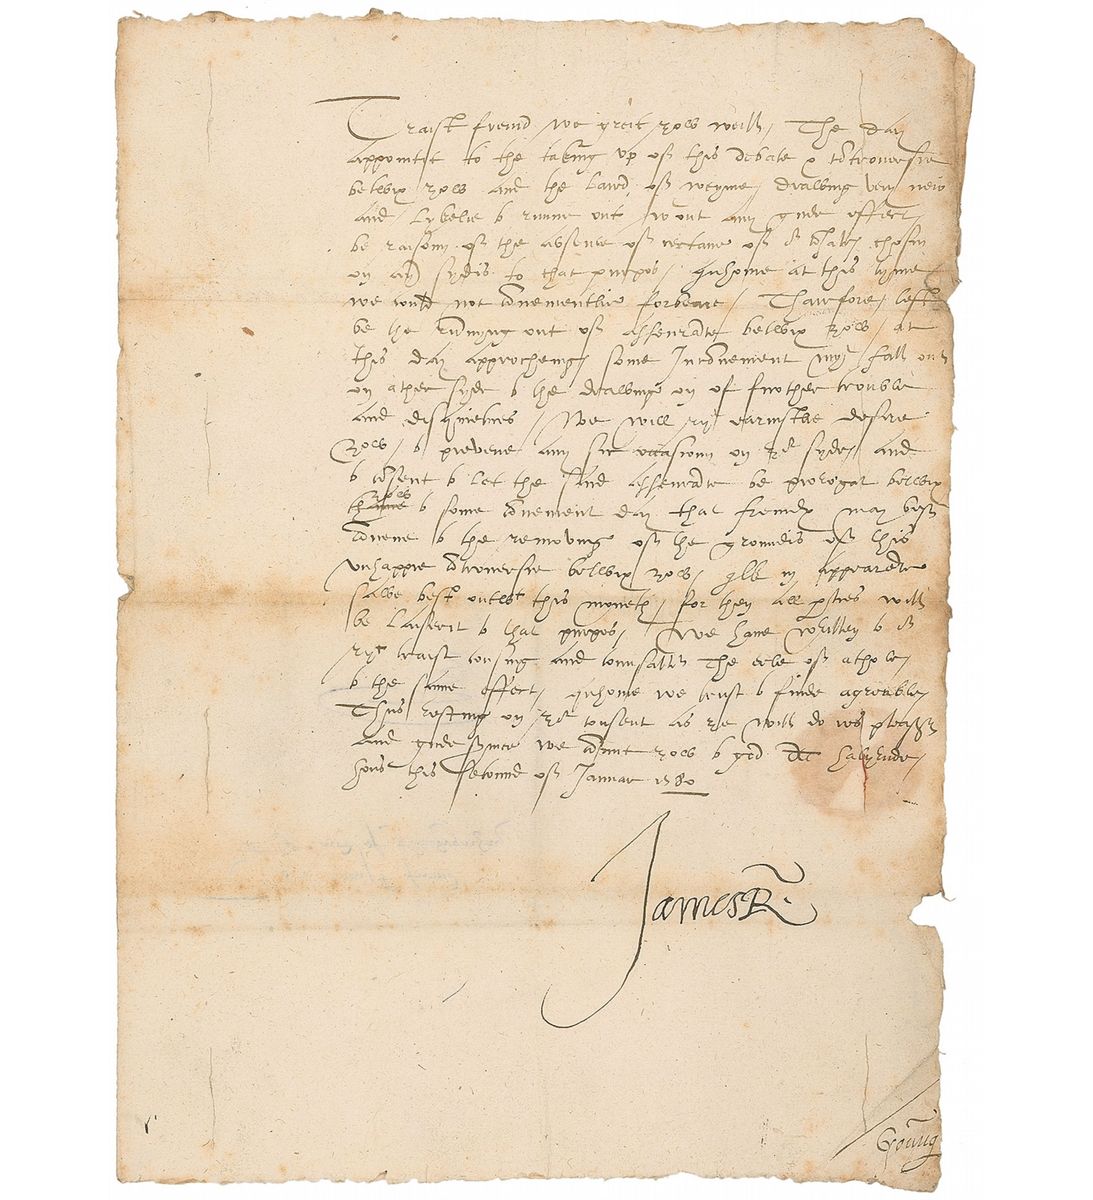 Traist freind we greit yow weill, The day
appointit to the taking up of this debate & controversie
betwix yow and the Laird of Weyme drawing very neir
and lykelie to rinne out wtout any gude effect
be raisoun of the absence of certane of ye chosin
on ayr sydis to that purpos, quhome at this tyme
we could not convenientlie forbeare, Thairfore, lest
be the rinning out of assurance betwix yow, at
this day approcheing some inconvenient may fall out
on ather syde to the drawing on of further trouble
and disquietnes, We will ryt earnistlie desire
yow, to prevene any sic occasioun on yor syde, and
to consent to let the said assurance be prorogat betwix
yow to some convenient day that freindis may best
convene to the removing of the groundis of this
unhappie controversie betwix yow, qlk in appearance
salbe best outwt this moneth, for then all parties will
be laiserit to that purpos, We have written to or
ryt traist cousing and counsallr The erle of athole,
to the same effect, quhome we trust to finde agreable,
Thus resting on yor consent as ye will do ws pleasr
and gude service we commit yow to god At halyrude
hous this secound of Januar 1580
James R.
Young